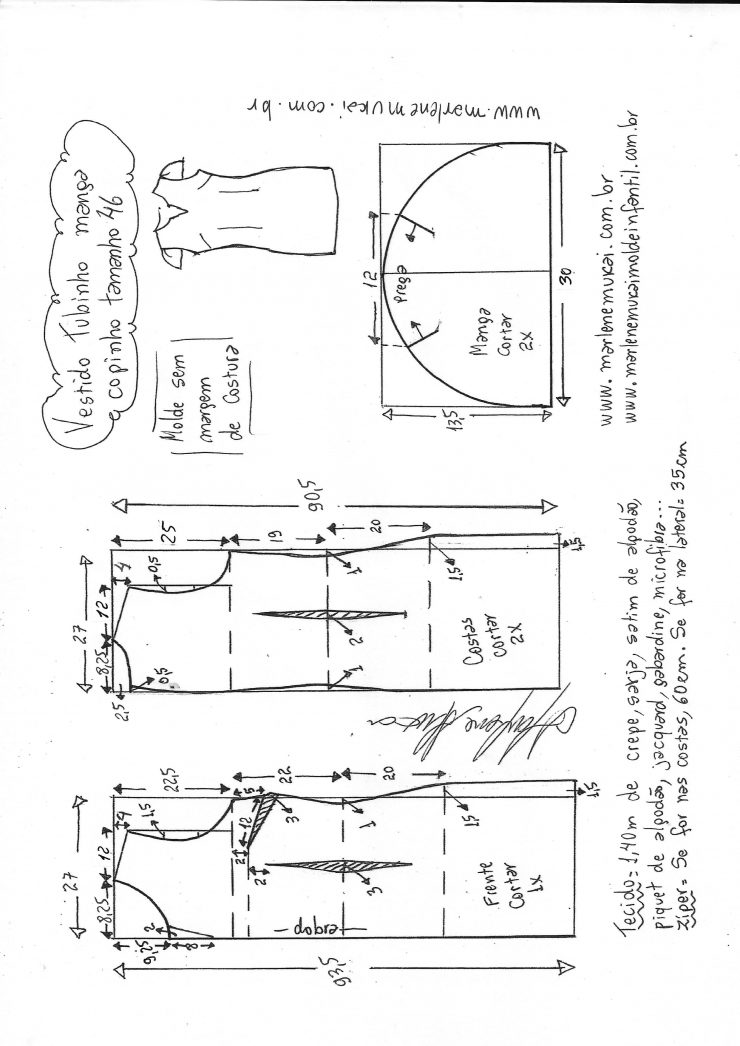 Vestido Tubinho manga
copinho tamanho 46
Molde sem
margem
de costura
www.marlenemukai.com.br
13,5
12
prega
Manga
Cortar
2x
30
www.marlenemukai.com.br
www.marlenemukaimoldeinfantil.com.br
90,5
25
19
20
27
8,25
12
4
0,5
2,5
0,5
1
2
1
1,5
1,5
Costas
cortar
2x
93,5
22,5
22
20
27
8,25
12
4
1,5
9,25
8
2
5
12
3
2
2
3
1
1,5
1,5
dobra
Frente
Cortar
1x
Tecido= 1,40m de crepe, sarja, satim de algodão,
piquet de algodão, jacquard, gabardine, microfibra...
Zíper= Se for nas costas, 60cm. Se for na lateral= 35cm